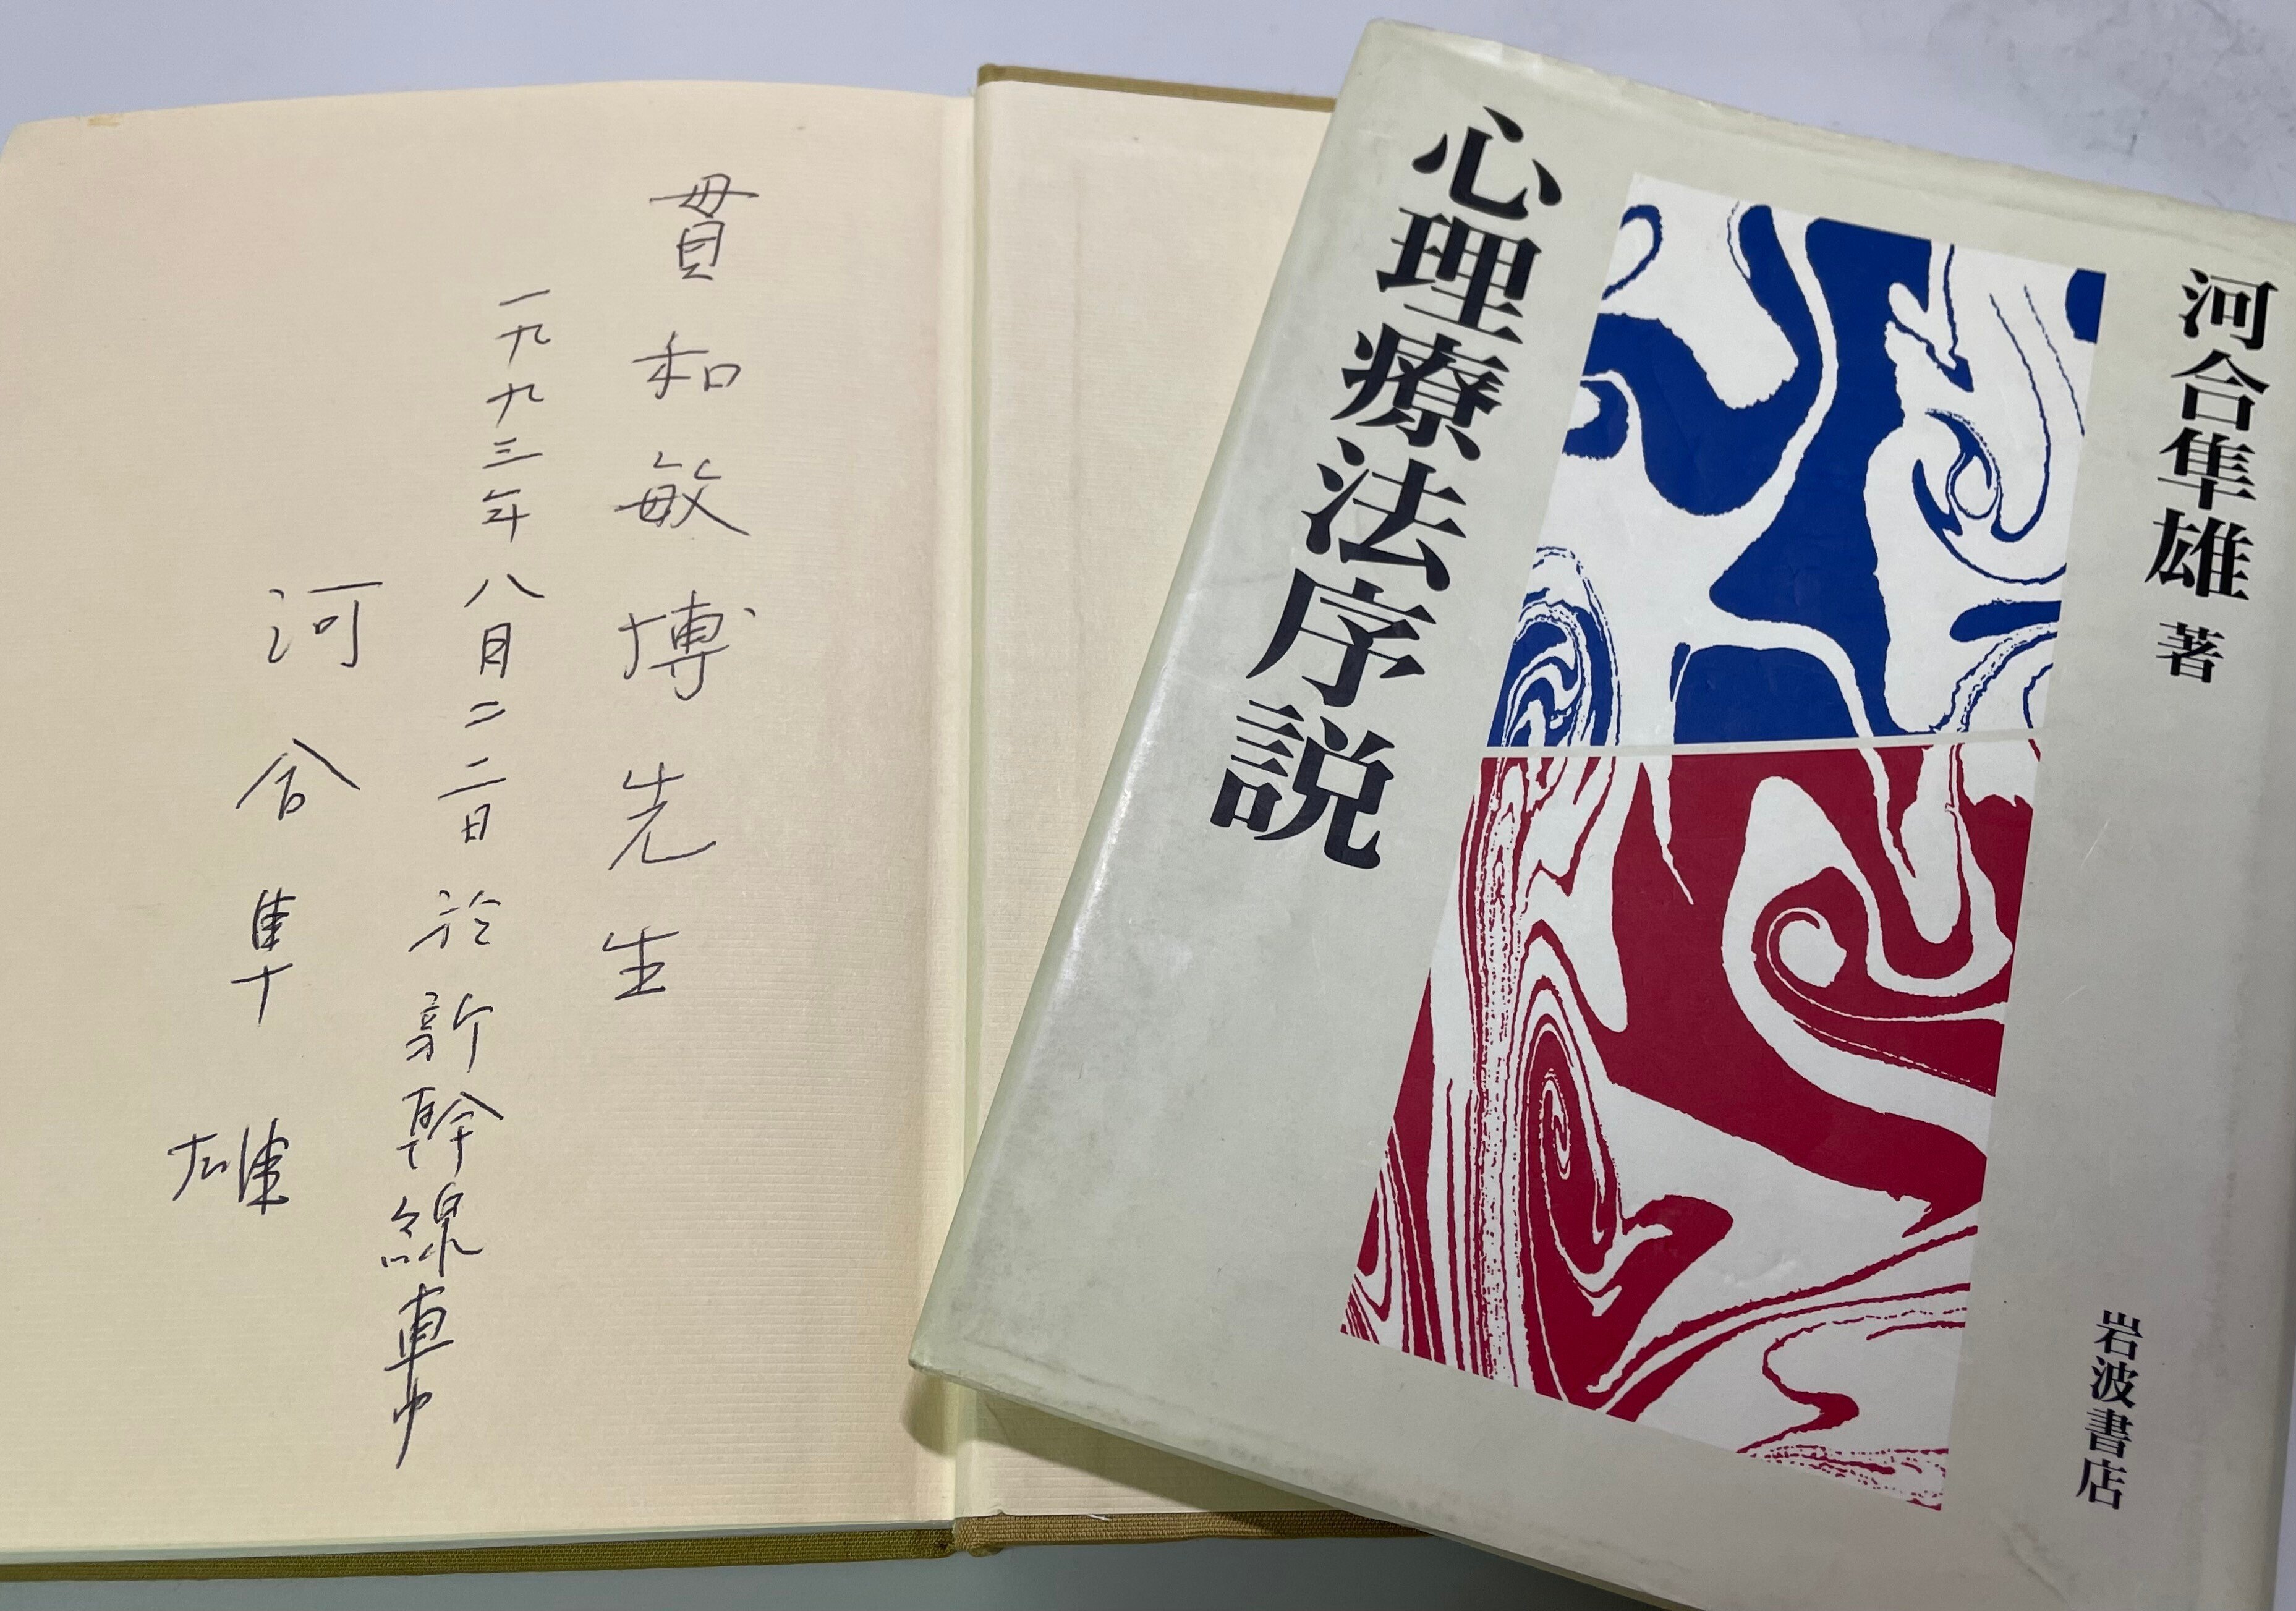 貫和敏博先生
一九九三年八月二二日 於新幹線車中
河合隼雄
河合隼雄 著
心理療法序説
岩波書店